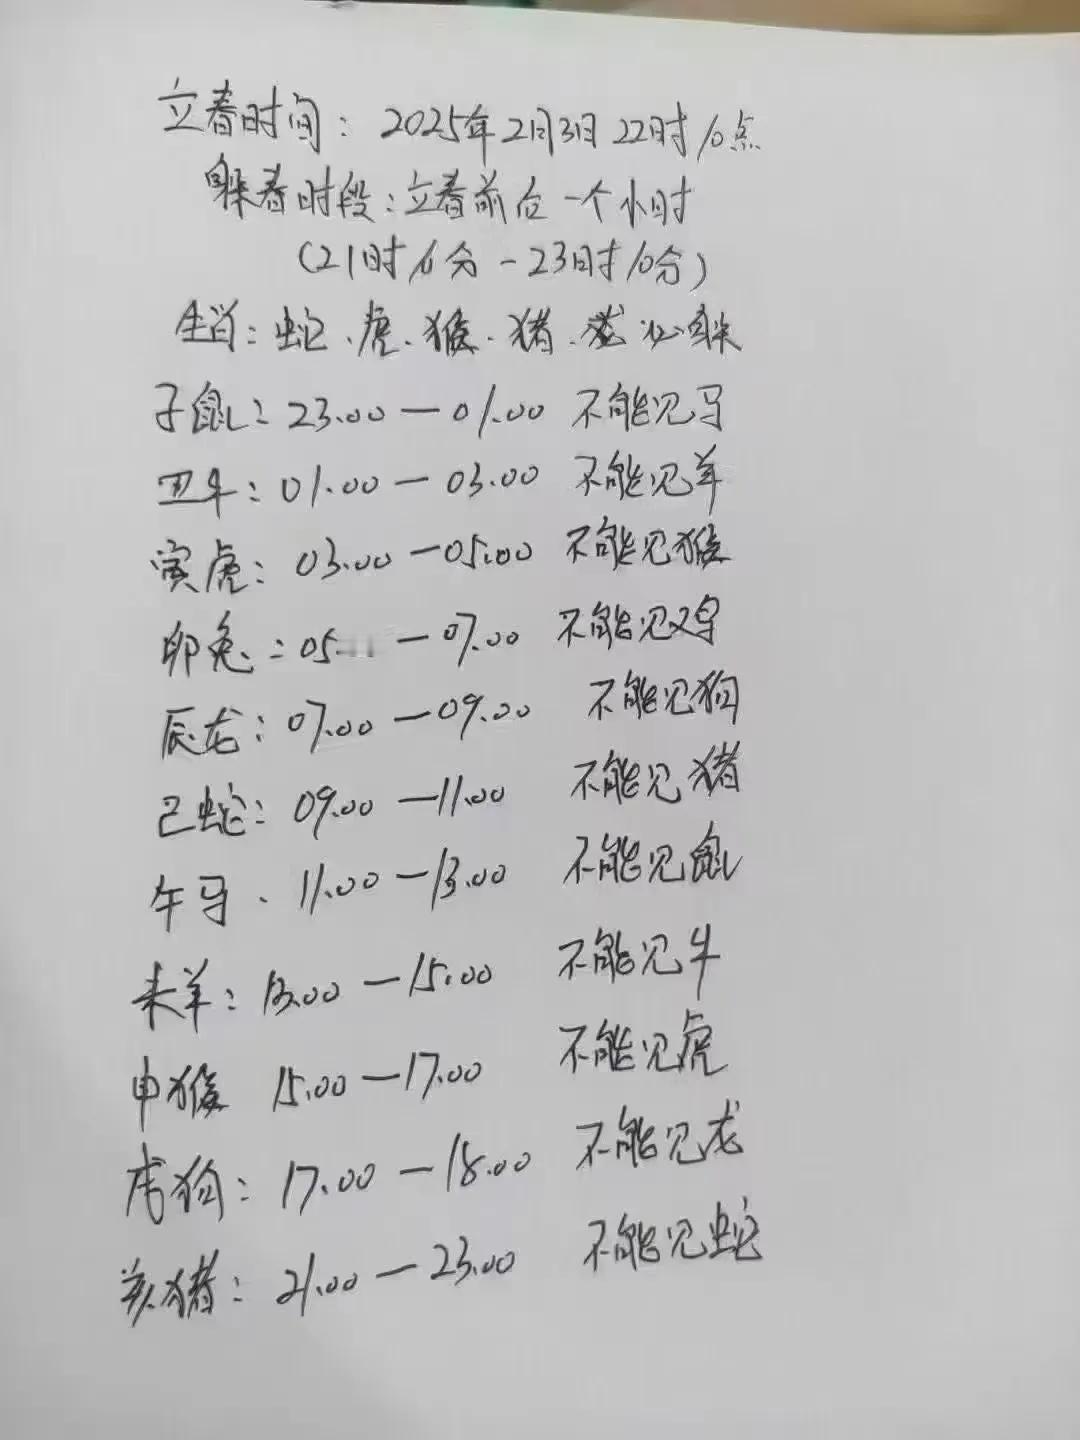 立春时间：2025年2月3日22时10点
躲春时段：立春前后一个小时
（21时10分－23时10分）
生肖：蛇、虎、猴、猪、龙必躲
子鼠：23.00－01.00 不能见马
丑牛：01.00－03.00 不能见羊
寅虎：03.00－05.00 不能见猴
卯兔：05.－07.00 不能见鸡
辰龙：07.00－09.00 不能见狗
己蛇：09.00－11.00 不能见猪
午马．11.00－13.00 不能见鼠
未羊：13.00－15.00 不能见牛
申猴 15.00－17.00 不能见虎
戌狗：17.00－18.00 不能见龙
亥猪：21.00－23.00 不能见蛇